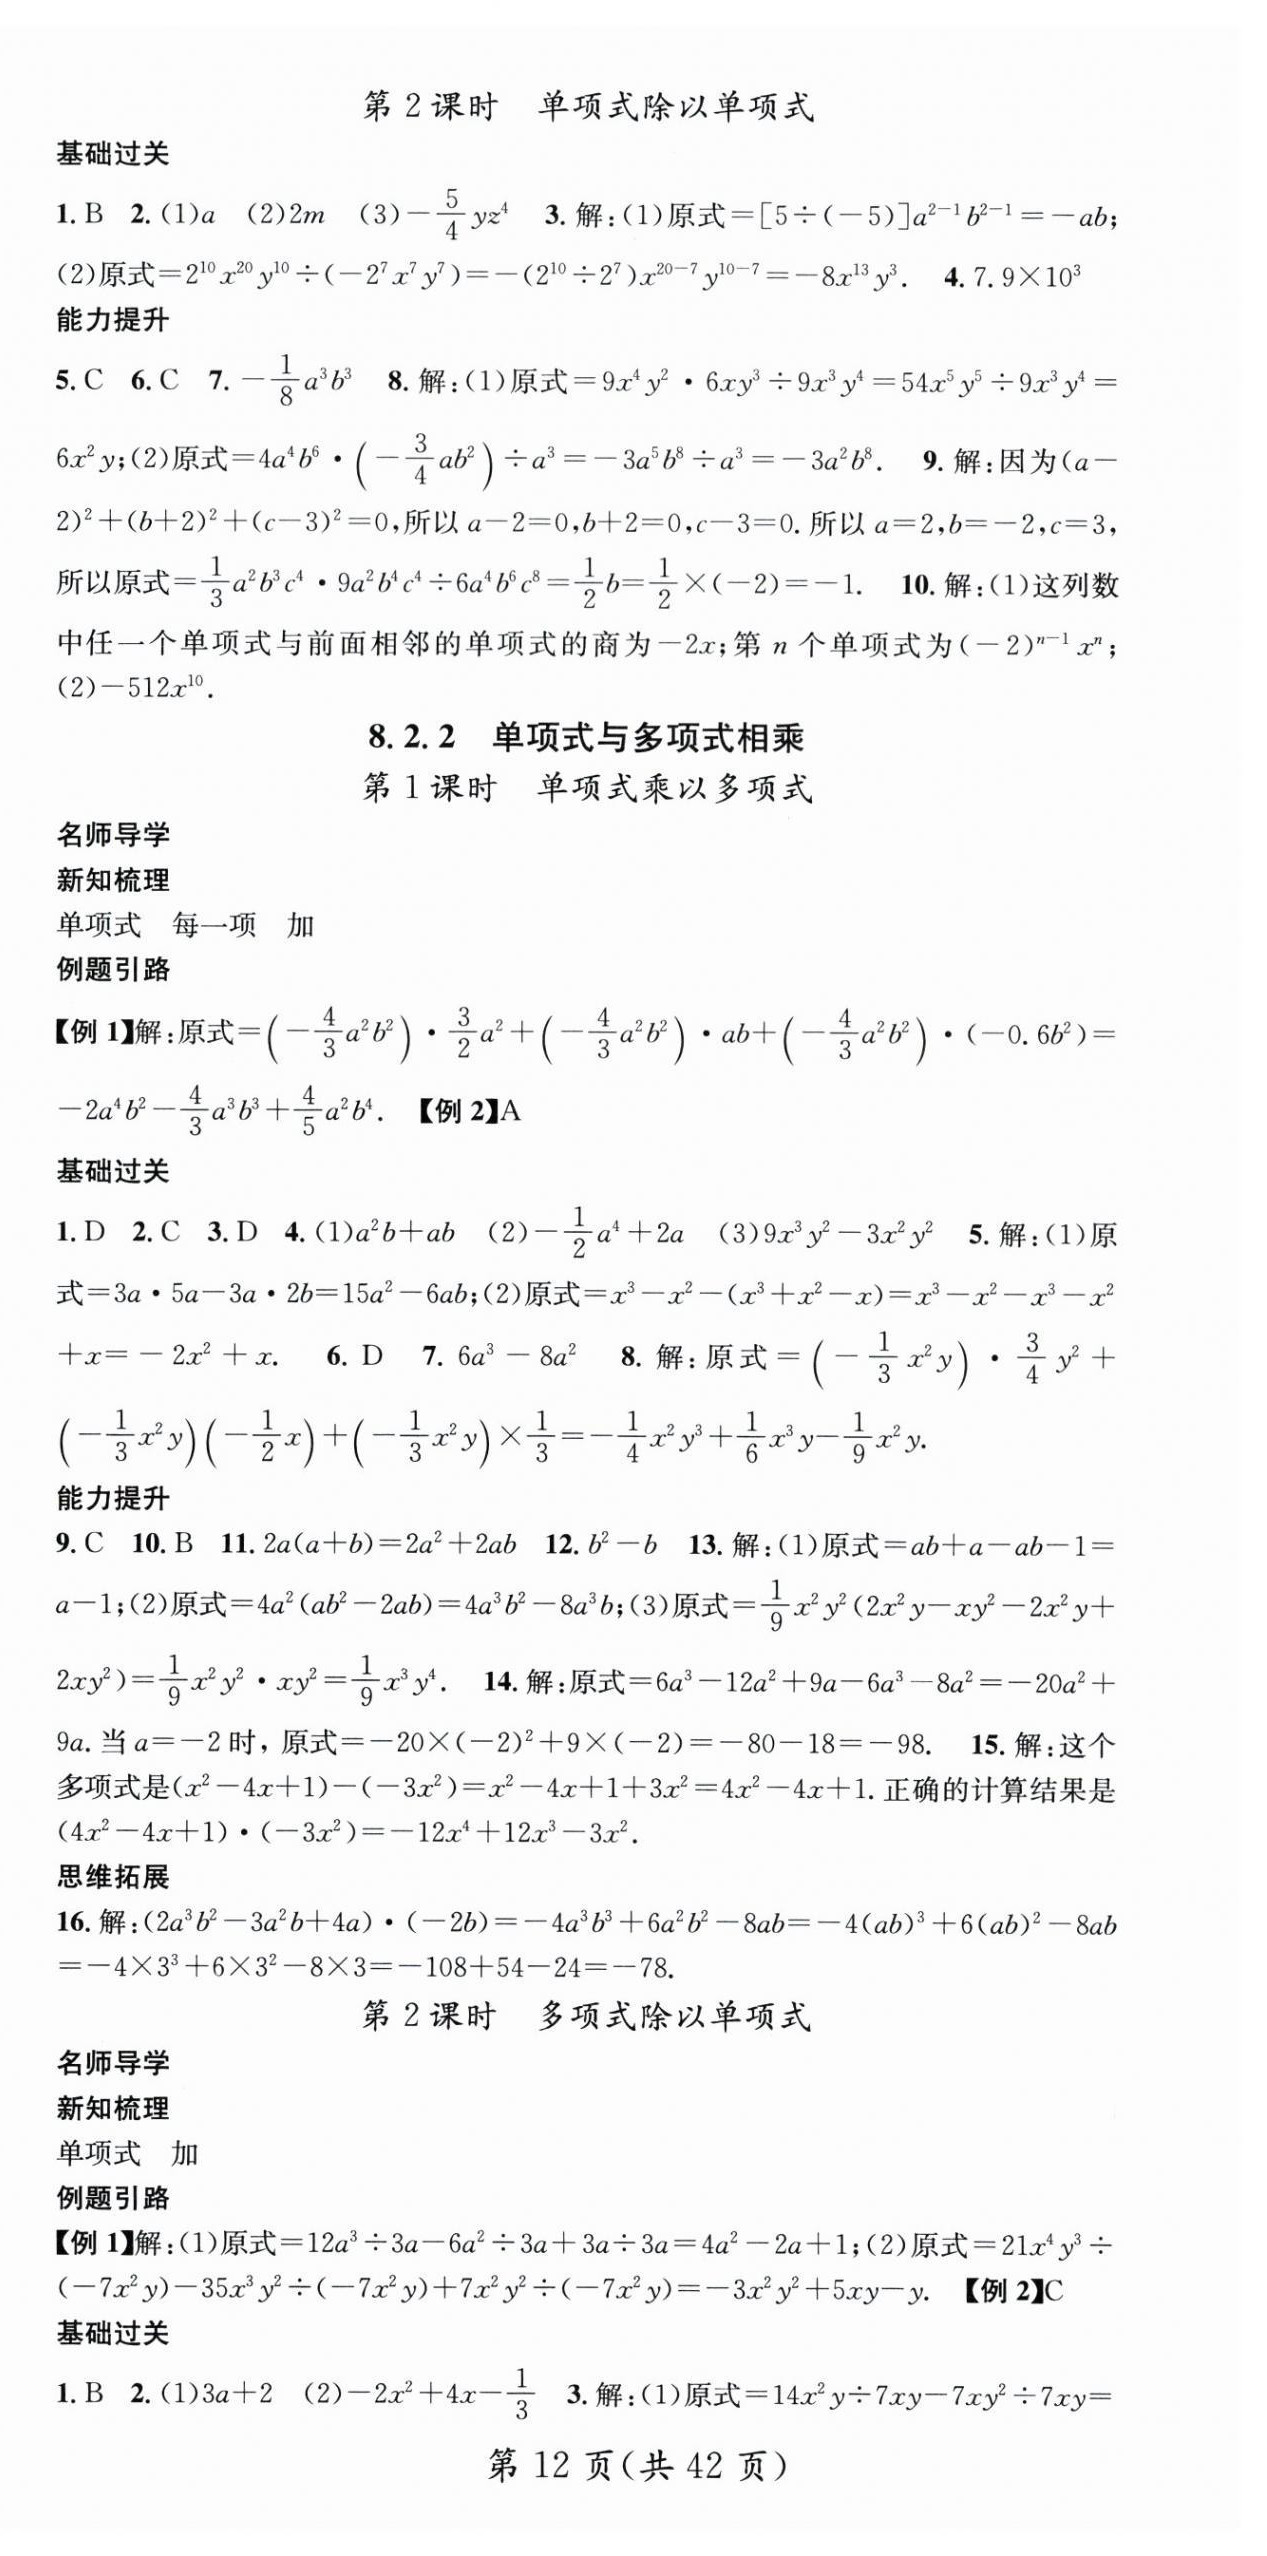 第 2 课时　单项式除以单项式
基础过关
1. B　2. (1)a　(2)2m　(3)−5/4 yz⁴　3. 解:(1)原式=[5÷(−5)]a²⁻¹b²⁻¹=−ab;
(2)原式=2¹⁰x²⁰y¹⁰÷(−2⁷x⁷y⁷)=−(2¹⁰÷2⁷)x²⁰⁻⁷y¹⁰⁻⁷=−8x¹³y³.　4. 7.9×10³
能力提升
5. C　6. C　7. −1/8 a³b³　8. 解:(1)原式=9x⁴y²·6xy³÷9x³y⁴=54x⁵y⁵÷9x³y⁴=
6x²y;(2)原式=4a⁴b⁶·(−3/4 ab²)÷a³=−3a⁵b⁸÷a³=−3a²b⁸.　9. 解:因为(a−
2)²+(b+2)²+(c−3)²=0,所以 a−2=0,b+2=0,c−3=0. 所以 a=2,b=−2,c=3,
所以原式=1/3 a²b³c⁴·9a²b⁴c⁴÷6a⁴b⁶c⁸=1/2 b=1/2×(−2)=−1.　10. 解:(1)这列数
中任一个单项式与前面相邻的单项式的商为−2x;第 n 个单项式为(−2)ⁿ⁻¹xⁿ;
(2)−512x¹⁰.
8.2.2　单项式与多项式相乘
第 1 课时　单项式乘以多项式
名师导学
新知梳理
单项式　每一项　加
例题引路
【例 1】解:原式=(−4/3 a²b²)·3/2 a²+(−4/3 a²b²)·ab+(−4/3 a²b²)·(−0.6b²)=
−2a⁴b²−4/3 a³b³+4/5 a²b⁴.　【例 2】A
基础过关
1. D　2. C　3. D　4. (1)a²b+ab　(2)−1/2 a⁴+2a　(3)9x³y²−3x²y²　5. 解:(1)原
式=3a·5a−3a·2b=15a²−6ab;(2)原式=x³−x²−(x³+x²−x)=x³−x²−x³−x²
+x=−2x²+x.　6. D　7. 6a³−8a²　8. 解:原式=(−1/3 x²y)·3/4 y²+
(−1/3 x²y)(−1/2 x)+(−1/3 x²y)×1/3=−1/4 x²y³+1/6 x³y−1/9 x²y.
能力提升
9. C　10. B　11. 2a(a+b)=2a²+2ab　12. b²−b　13. 解:(1)原式=ab+a−ab−1=
a−1;(2)原式=4a²(ab²−2ab)=4a³b²−8a³b;(3)原式=1/9 x²y²(2x²y−xy²−2x²y+
2xy²)=1/9 x²y²·xy²=1/9 x³y⁴.　14. 解:原式=6a³−12a²+9a−6a³−8a²=−20a²+
9a. 当 a=−2 时, 原式=−20×(−2)²+9×(−2)=−80−18=−98.　15. 解:这个
多项式是(x²−4x+1)−(−3x²)=x²−4x+1+3x²=4x²−4x+1. 正确的计算结果是
(4x²−4x+1)·(−3x²)=−12x⁴+12x³−3x².
思维拓展
16. 解:(2a³b²−3a²b+4a)·(−2b)=−4a³b³+6a²b²−8ab=−4(ab)³+6(ab)²−8ab
=−4×3³+6×3²−8×3=−108+54−24=−78.
第 2 课时　多项式除以单项式
名师导学
新知梳理
单项式　加
例题引路
【例 1】解:(1)原式=12a³÷3a−6a²÷3a+3a÷3a=4a²−2a+1;(2)原式=21x⁴y³÷
(−7x²y)−35x³y²÷(−7x²y)+7x²y²÷(−7x²y)=−3x²y²+5xy−y.　【例 2】C
基础过关
1. B　2. (1)3a+2　(2)−2x²+4x−1/3　3. 解:(1)原式=14x²y÷7xy−7xy²÷7xy=
第 12 页(共 42 页)